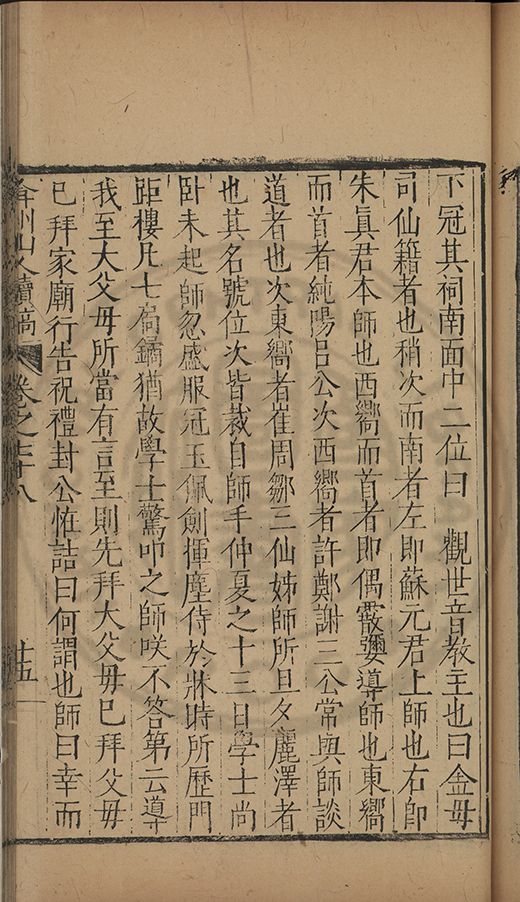 下冠其祠南面中二位曰　觀世音教主也曰金母
司仙籍者也稍次而南者左即蘇元君上師也右即
朱眞君本師也西嚮而首者即偶霞彌導師也東嚮
而首者純陽呂公次西嚮者許鄭謝三公常與師談
道者也次東嚮者崔周鄒三仙姊師所旦夕麗澤者
也其名號位次皆裁自師手仲夏之十三日學士尚
卧未起師忽盛服冠玉佩劍揮麈侍於牀時所歷門
距樓凡七扃鐍猶故學士驚叩之師咲不答第云導
我至大父母所當有言至則先拜大父母已拜父母
已拜家廟行告祝禮封公恠詰曰何謂也師曰幸而
弇州山人續稿　卷之七十八　十五